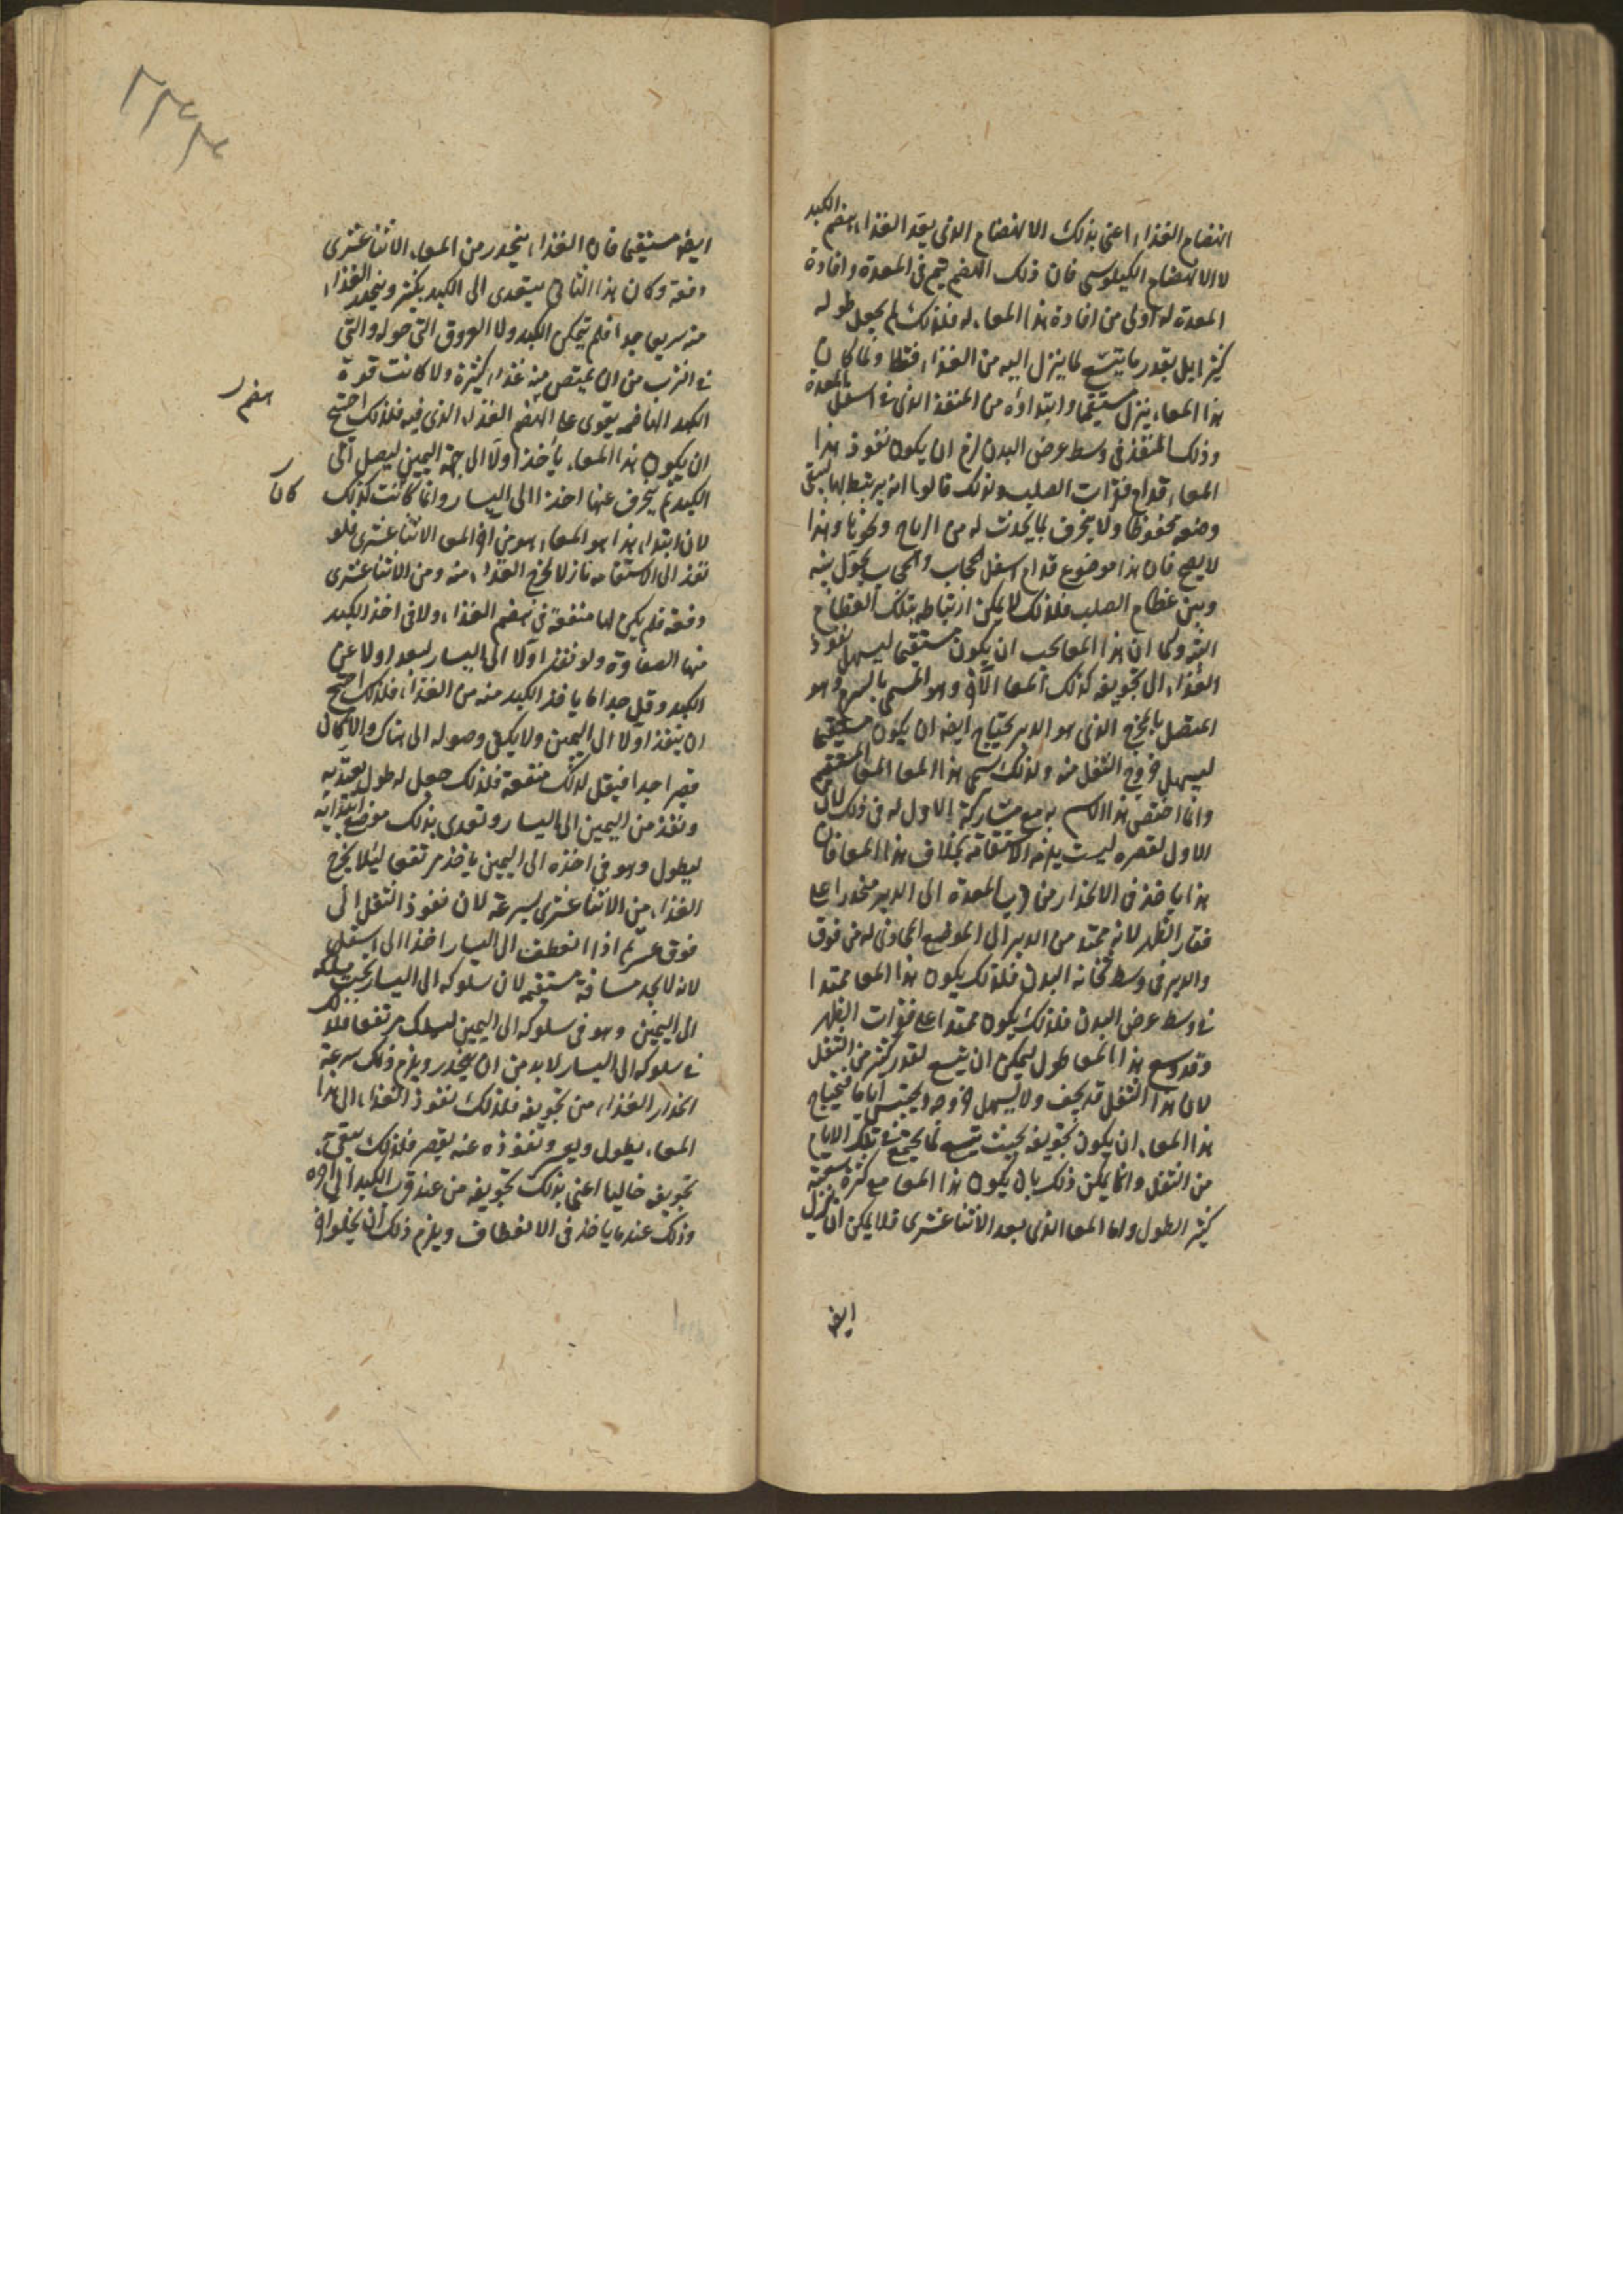 انهضام الغذاء اعنى بذلك الانهضام الذى يعد الغذاء لهضم الكبد
لا الانهضام الكيلوسى فان ذلك الهضم يتم فى المعدة وافادة
المعدة له اولى من افادة هذا المعاء له فلذلك لم يجعل طوله
كثيرا بل بقدر ما يتسع لما ينزل اليه من الغذاء فقط ولما كان
هذا المعاء ينزل مستقيما وابتداؤه من المنفذ الذى فى اسفل المعدة
وذلك المنفذ فى وسط عرض البدن لزم ان يكون نفوذ هذا
المعاء قدام فقرات الصلب ولذلك قالوا انه يرتبط بها ليبقى
وضعه محفوظا ولا ينحرف بما يحدث له من الرياح ونحوها وهذا
لا يصح فان هذا موضوع قدام اسفل الحجاب والحجاب يحول بينه
وبين عظام الصلب فلذلك لا يمكن ارتباطه بتلك العظام
البتة وكما ان هذا المعا يجب ان يكون مستقيما ليسهل نفوذ
الغذاء الى تجويفه كذلك المعا الآخر وهو المسمى بالسرم وهو
المتصل بالمخرج الذى هو الدبر يحتاج ايضا ان يكون مستقيما
ليسهل خروج الثفل منه ولذلك سمى هذا المعا المعا المستقيم
وانما اختص هذا الاسم به مع مشاركة الاول له فى ذلك لان
الاول لقصره ليست يلزمه الاستقامة بخلاف هذا المعا فان
هذا ياخذ فى الانحدار من قرب المعدة الى الدبر منحدرا على
فقار الظهر لانه ممتد من الدبر الى الموضع المحاذى له من فوق
والدبر فى وسط ثخانة البدن فلذلك يكون هذا المعا ممتدا
فى وسط عرض البدن فلذلك يكون ممتدا على فقرات الظهر
وقد وسع هذا المعا طول ليمكن ان يتسع لقدر كثير من الثفل
لان هذا الثفل قد يجف ولا يسهل خروجه ويحتبس اياما فيحتاج
هذا المعاء ان يكون تجويفه بحيث يتسع لما يجتمع فى تلك الايام
من الثفل وانما يمكن ذلك بان يكون هذا المعا مع كثرة سعته
كثير الطول واما المعا الذى بعد الاثنا عشرى فلا يمكن ان ينزل
ايضا
ايضا مستقيما فان الغذاء ينحدر من المعاء الاثنا عشرى
دفعة وكان هذا الثانى يتعدى الى الكبد بكثير وينحدر الغذاء
منه سريعا جدا فلم يتمكن الكبد ولا العروق التى حوله والتى
فى الثرب من ان يمتص منه غذاء كثيرة ولا كانت قوة
الكبد الهاضمة يقوى على الهضم الغذاء الذى فيه فلذلك احتيج
ان يكون هذا المعاء يأخذ اولا الى جهة اليمين ليصل الى
الكبد ثم ينحرف عنها اخذا الى اليسار وانما كانت كذلك
كان
لان ابتداء هذا هو المعاء هو من اخر المعى الاثنا عشرى فلو
نفذ الى الاستقامة نازلا لخرج الغذاء منه ومن الاثنا عشرى
دفعة فلم يكن لها منفعة فى هضم الغذاء ولا فى اخذ الكبد
منها الصفاوة ولو نفذ اولا الى اليسار لبعد اولا عن
الكبد وقل جدا ما ياخذ الكبد منه من الغذاء فلذلك احتيج
ان ينفذ اولا الى اليمين ولا يكفى وصوله الى هناك والا لكان
قصيرا جدا فيقل لذلك منفعة فلذلك جعل له طول يعتد به
ونفذ من اليمين الى اليسار وتعدى بذلك موضع ابتدائه
ليطول وهو فى اخذه الى اليمين ياخذ مرتفعا ليلا يخرج
الغذاء من الاثنا عشرى بسرعة لان نفوذ الثفل الى
فوق عسر ثم اذا انعطف الى اليسار اخذ الى اسفل
لانه لا يجد مسافة مستقيمة لان سلوكه الى اليسار تحت مسلكه
الى اليمين وهو فى سلوكه الى اليمين يسلك مرتفعا فلذلك
فى سلوكه الى اليسار لا بد من ان ينحدر ويلزم ذلك سرعة
انحدار الغذاء من تجويفه فلذلك نفوذ الغذاء الى هذا
المعاء يطول ونفوذه عنه يقصر فلذلك يبقى
تجويفه خاليا اعنى بذلك تجويفه من عند قرب الكبد الى اخره
وذلك عندما ياخذ فى الانعطاف ويلزم ذلك ان يخلو اخر